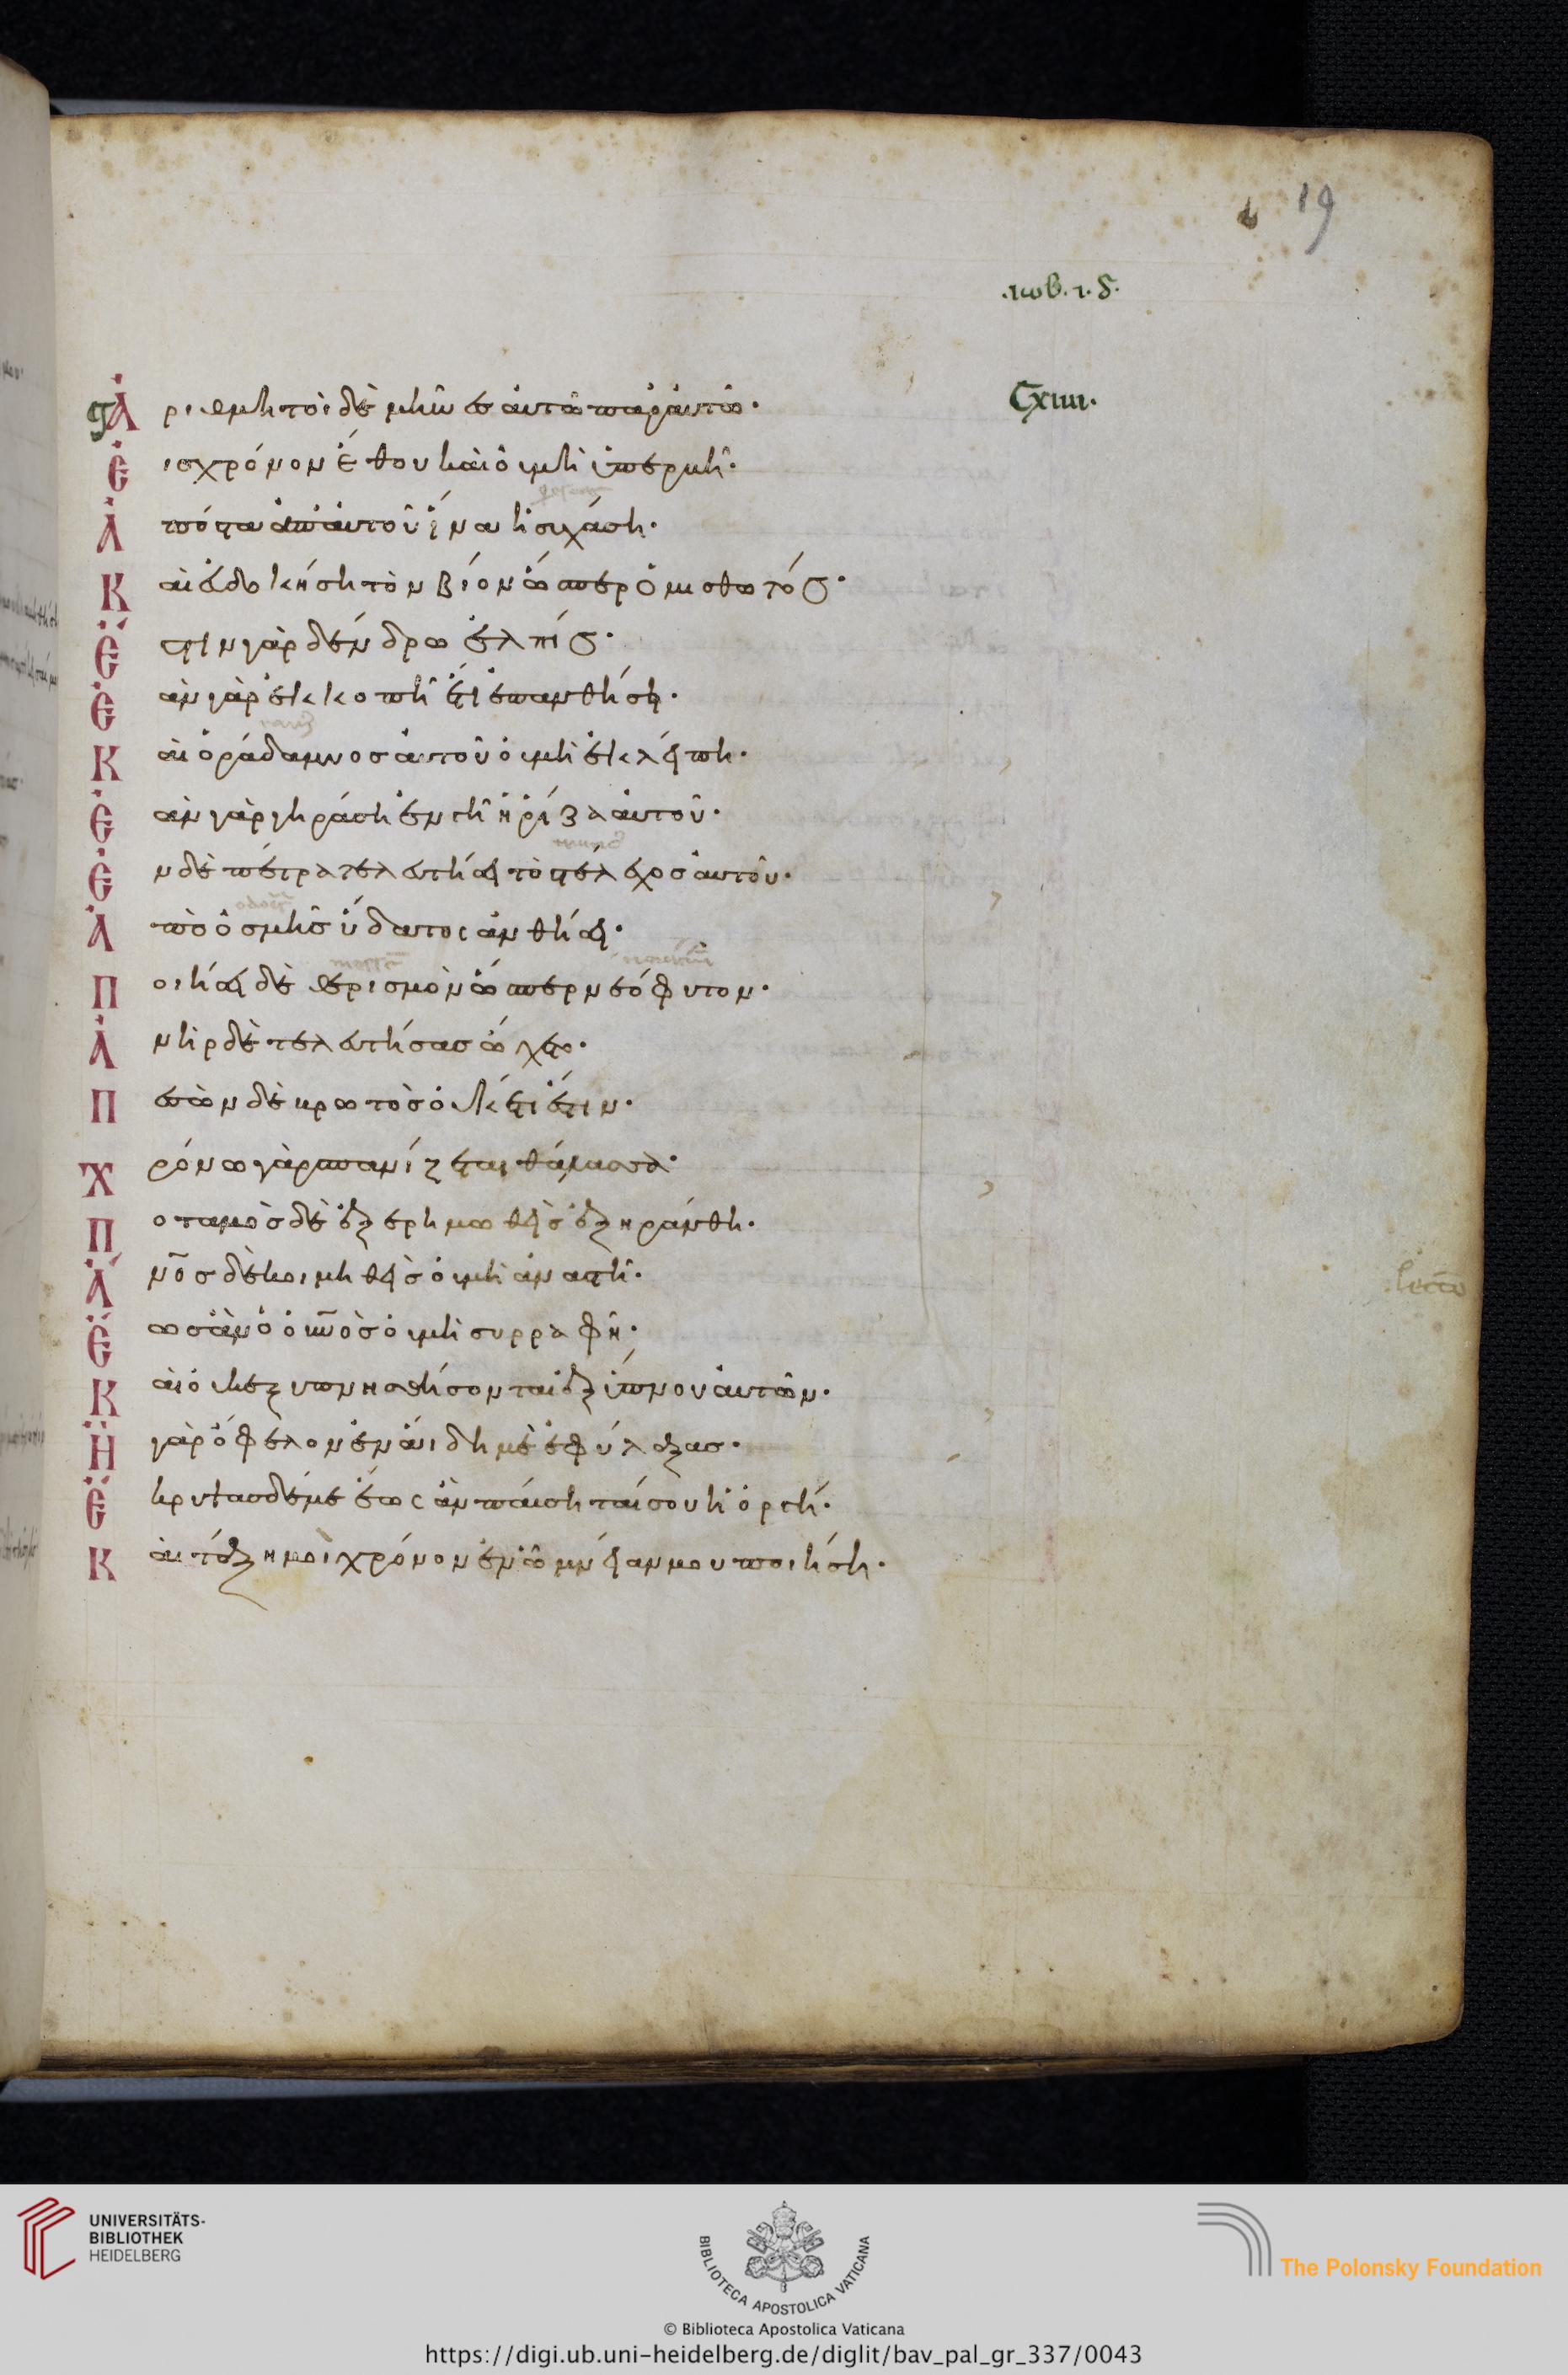 19
.ιωβ. ι. δ.
Cxiiii.
Ἀριθμητοὶ δὲ μῆνες αὐτῶ παρ αὐτῶ·
Εἰς χρόνον ἔθου καὶ οὐ μὴ ὑπερβῆ·
Ἀπόστα ἀπ αὐτοῦ ἵνα ἡσυχάση·
Καὶ εὐδοκήση τὸν βίον ὥσπερ ὁ μισθωτός·
Ἔστιν γὰρ δένδρω ἐλπίς·
Ἐὰν γὰρ ἐκκοπῆ ἔτι ἐπανθήση·
Καὶ ὁ ράδαμνος αὐτοῦ οὐ μὴ ἐκλείπη·
Ἐὰν γὰρ γηράση ἐν γῆ ἡ ρίζα αὐτοῦ·
Ἐν δὲ πέτρα τελευτήσει τὸ στέλεχος αὐτοῦ·
Ἀπὸ ὀσμῆς ὕδατος ἀνθήσει·
Ποιήσει δὲ θερισμὸν ὥσπερ νεόφυτον·
Ἀνὴρ δὲ τελευτήσας ὤχετο·
Πεσὼν δὲ βροτὸς οὐκέτι ἔστιν·
Χρόνω γὰρ σπανίζεται θάλασσα·
Ποταμὸς δὲ ἐξερημωθεὶς ἐξηράνθη·
Ἄνος δὲ κοιμηθεὶς οὐ μὴ ἀναστῆ·
Ἕως ἂν ὁ οὐνὸς οὐ μὴ συρραφῆ·
Καὶ οὐκ ἐξυπνησθήσονται ἐξ ὕπνου αὐτῶν·
Ἢ γὰρ ὄφελον ἐν ἅιδη με ἐφύλαξας·
Ἔκρυψας δέ με ἕως ἂν παύσηταί σου ἡ ὀργή·
Καὶ τάξη μοι χρόνον ἐν ᾧ μνείαν μου ποιήση·
UNIVERSITÄTS-
BIBLIOTHEK
HEIDELBERG
BIBLIOTECA APOSTOLICA VATICANA
© Biblioteca Apostolica Vaticana
The Polonsky Foundation
https://digi.ub.uni-heidelberg.de/diglit/bav_pal_gr_337/0043